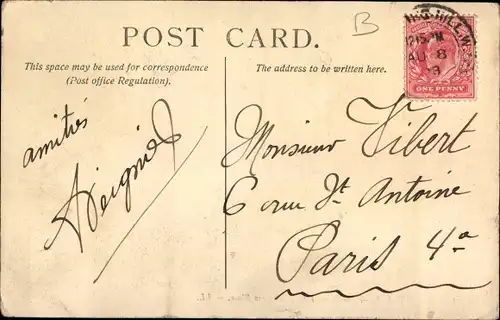 POST CARD.
B
This space may be used for correspondence
(Post office Regulation).
The address to be written here.
AU 8
ONE PENNY
amitiés
Monsieur Vibert
6 rue St Antoine
Paris 4e